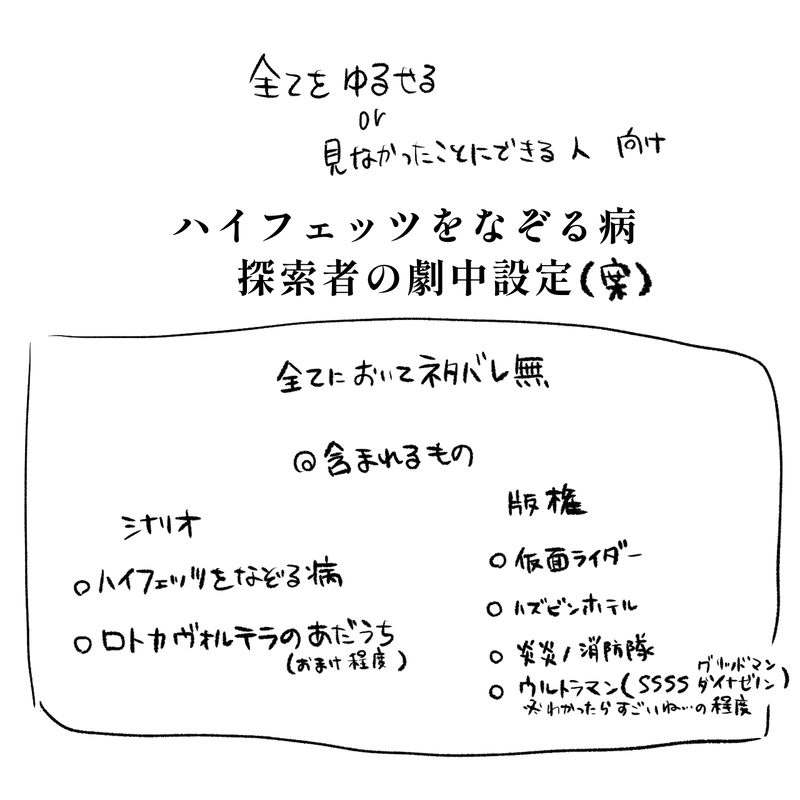 全てをゆるせる
or
見なかったことにできる人 向け
ハイフェッツをなぞる病
探索者の劇中設定(案)
全てにおいてネタバレ無
◎含まれるもの
シナリオ
○ハイフェッツをなぞる病
○ロトカヴォルテラのあだうち
(おまけ程度)
版権
○仮面ライダー
○ハズビンホテル
○炎炎ノ消防隊
○ウルトラマン(SSSS グリッドマン ダイナゼノン)
※わかったらすごいね…の程度